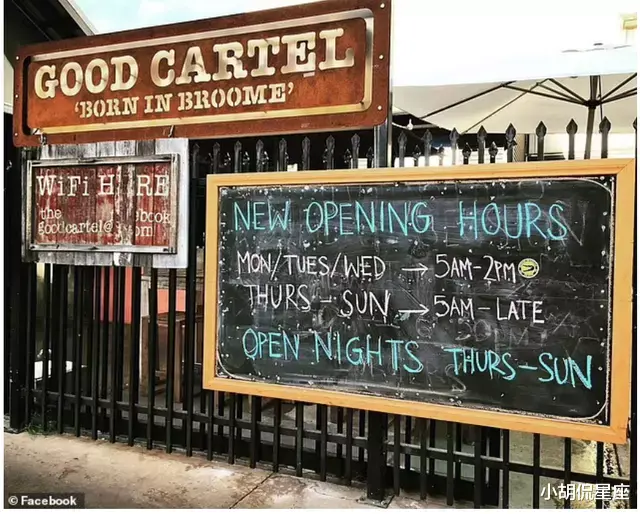 GOOD CARTEL
'BORN IN BROOME'
WiFi H RE
the book
goodcartel@ com
NEW OPENING HOURS
MON/TUES/WED → 5AM-2PM
THURS - SUN → 5AM - LATE
OPEN NIGHTS THURS-SUN
© Facebook
小胡侃星座